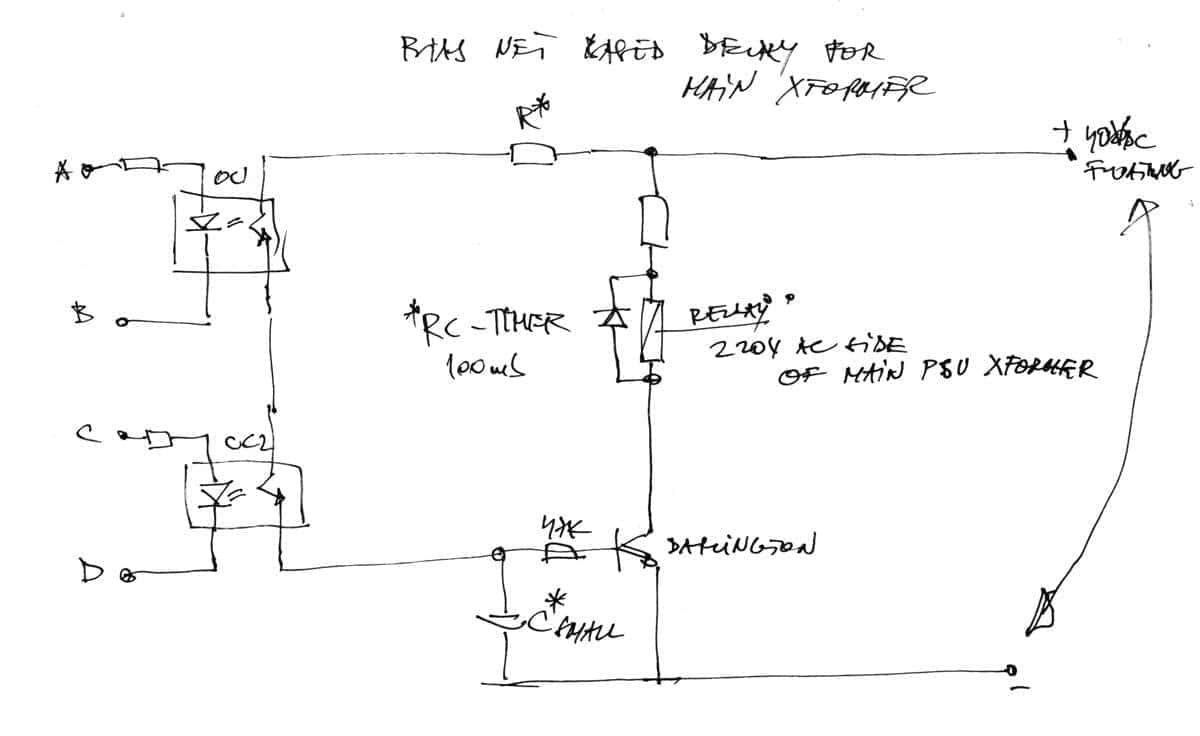 BIAS NET BASED DELAY FOR
MAIN XFORMER
R*
+ 40VDC
FLOATING
A
OC1
B
*RC-TIMER
100mS
RELAY
220V AC SIDE
OF MAIN PSU XFORMER
C
OC2
47K
DARLINGTON
D
C* SMALL
-